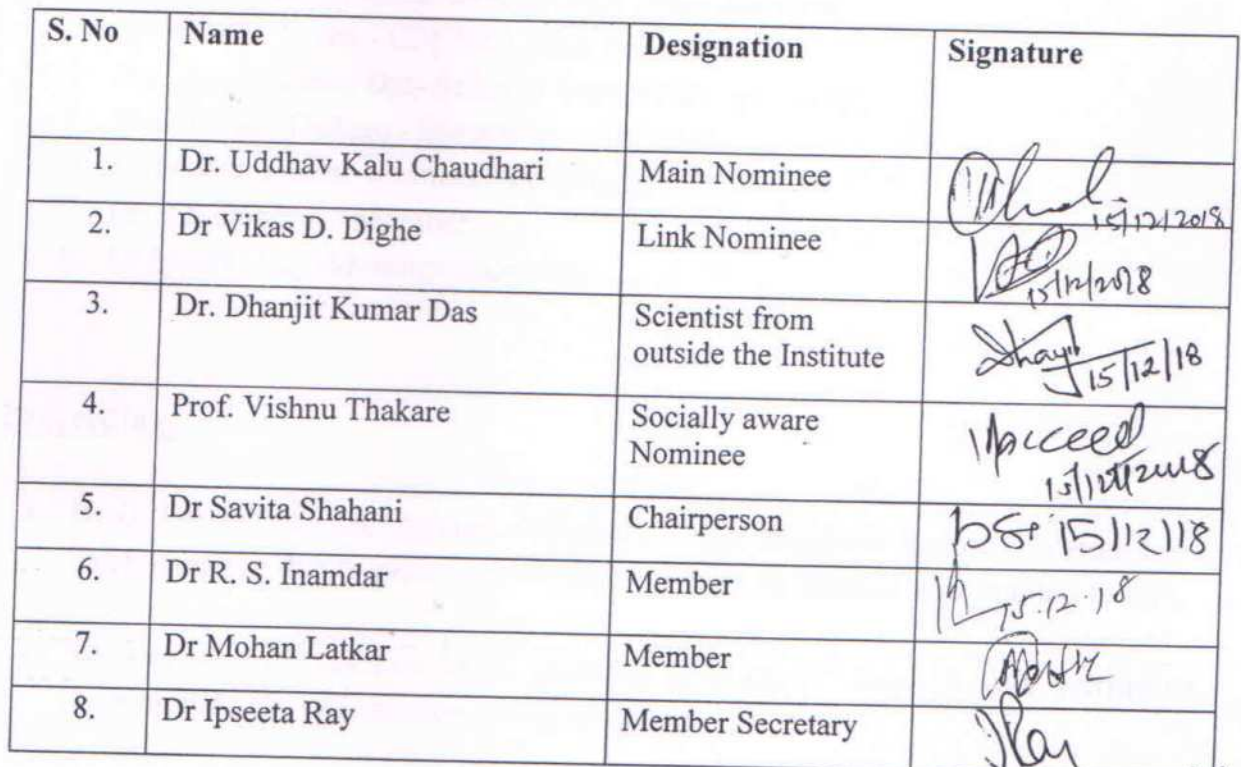 S. No Name Designation Signature
1. Dr. Uddhav Kalu Chaudhari Main Nominee
15/12/2018
2. Dr Vikas D. Dighe Link Nominee
15/12/2018
3. Dr. Dhanjit Kumar Das Scientist from
outside the Institute
15/12/18
4. Prof. Vishnu Thakare Socially aware
Nominee
15/12/2018
5. Dr Savita Shahani Chairperson 15/12/18
6. Dr R. S. Inamdar Member 15.12.18
7. Dr Mohan Latkar Member
8. Dr Ipseeta Ray Member Secretary IRay